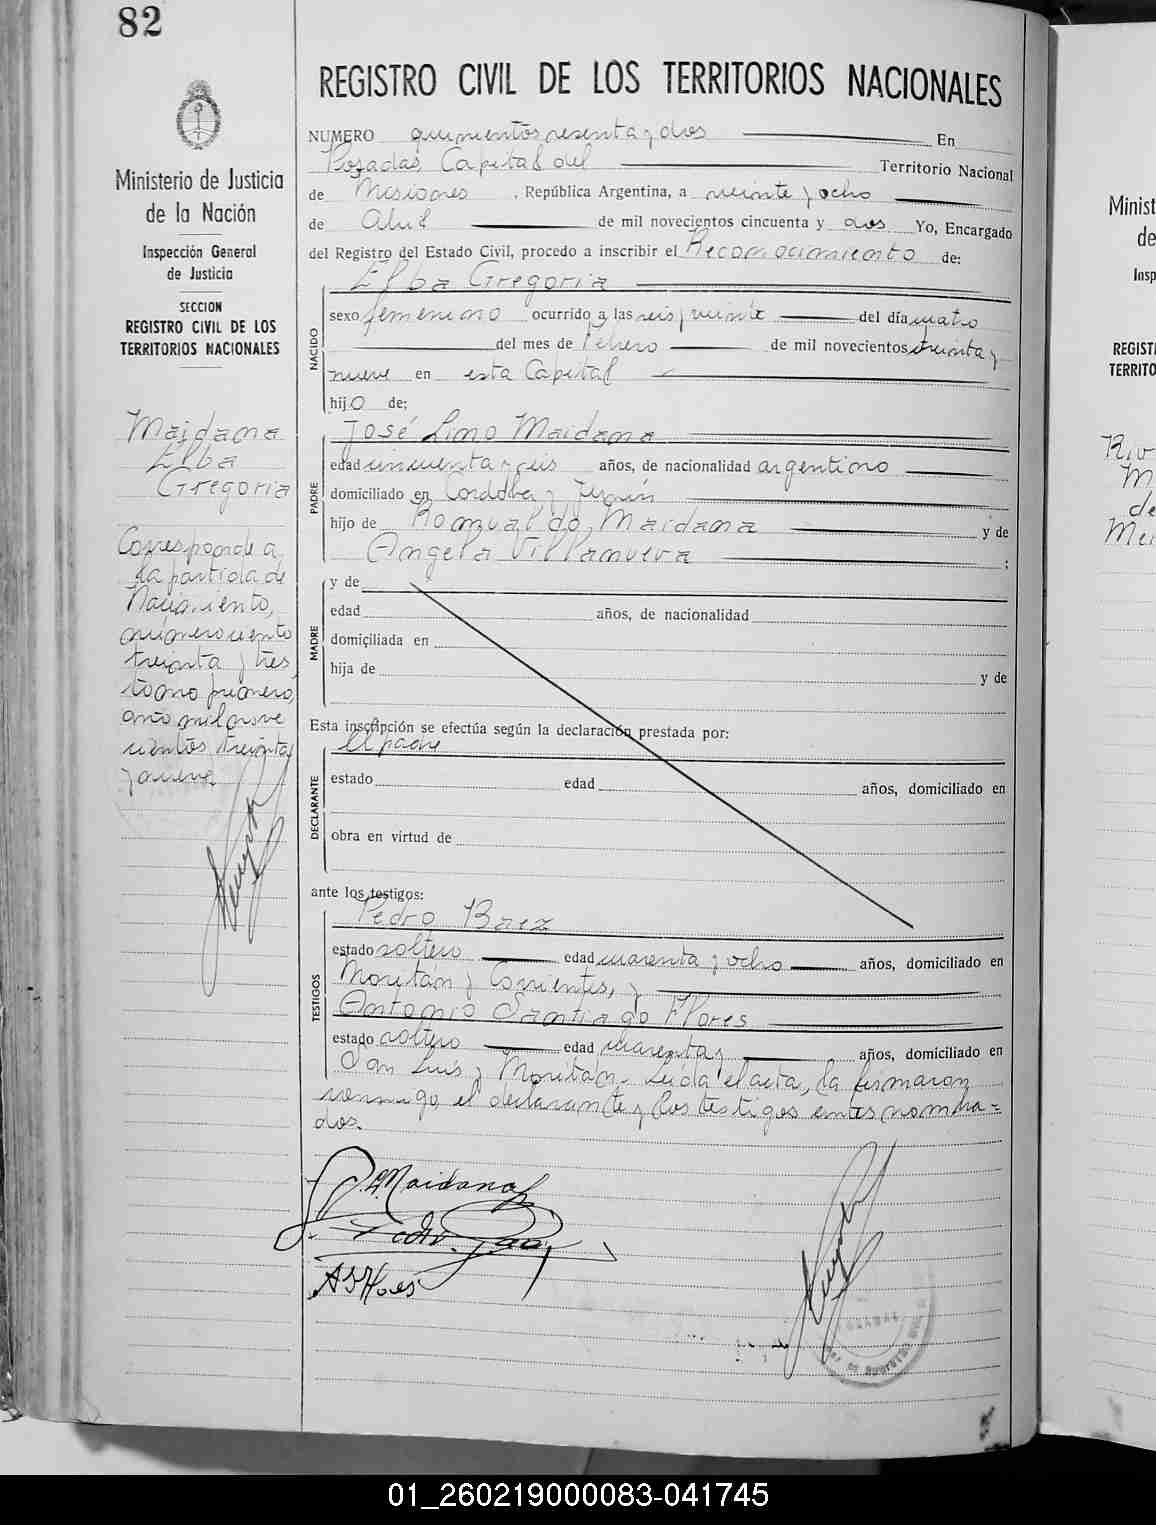 82
REGISTRO CIVIL DE LOS TERRITORIOS NACIONALES
Ministerio de Justicia
de la Nación
Inspección General
de Justicia
SECCION
REGISTRO CIVIL DE LOS
TERRITORIOS NACIONALES
Maidana
Elba
Gregoria
Corresponde a
la partida de
Nacimiento,
número ciento
treinta y tres
tomo primero,
año mil nove
cientos treinta
y nueve
NUMERO quinientos sesenta y dos En
Posadas, Capital del Territorio Nacional
de Misiones , República Argentina, a veinte y ocho
de Abril de mil novecientos cincuenta y dos Yo, Encargado
del Registro del Estado Civil, procedo a inscribir el Reconocimiento de:
NACIDO
Elba Gregoria
sexo femenino ocurrido a las seis y veinte del día cuatro
del mes de Febrero de mil novecientos treinta y
nueve en esta Capital
hijo de:
PADRE
José Lino Maidana
edad cincuenta y seis años, de nacionalidad argentino
domiciliado en Cordoba y Junín
hijo de Romualdo Maidana y de
Angela Villanueva ;
MADRE
y de
edad años, de nacionalidad
domiciliada en
hija de y de
Esta inscripción se efectúa según la declaración prestada por:
DECLARANTE
El padre
estado edad años, domiciliado en
obra en virtud de
ante los testigos:
TESTIGOS
Pedro Baez
estado soltero edad cuarenta y ocho años, domiciliado en
Moritán y Corrientes, y
Antonio Santiago Flores
estado soltero edad cuarenta y años, domiciliado en
San Luis y Moritán. Leída el acta, la firmaron
conmigo, el declarante y los testigos antes nombra=
dos.
Maidana
Pedro Baez
A S Flores
Minist
de
Insp
REGIST
TERRITO
01_260219000083-041745